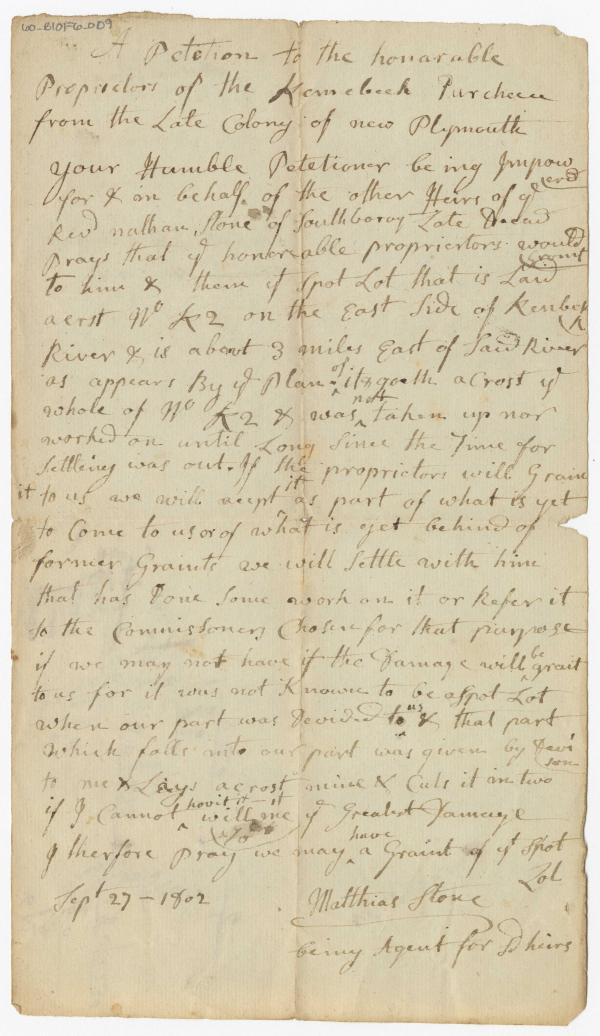 60-B10F6-009
A Petetion to the honarable
Proprietors of the Kennebeck Purcheee
from the Late Colony of new Plymouth
your Humble Petetioner being Impow
erd
for & in behalf of the other Heirs of ye
Revd nathan Stone of Southborog Late Dead
Prays that ye honereable proprietors would
Graint
to him & them ye Spot Lot that is Laid
acrst No K2 on the East Side of Kenbec
k
River & is about 3 miles East of Said River
as appears By ye Plan of it & goeth acrost ye
whole of No K2 & was not taken up nor
worked on until Long Since the Time for
Settleing was out. If the proprietors will Graint
it to us we will acept it as part of what is yet
to Come to us or of what is yet behind of
former Graints we will Settle with him
that has Done Some work on it or Refer it
to the Commissoners Chosen for that purpose
if we may not have if the Damage will be grait
to us for it was not Knowe to be a Spot Lot
when our part was Devided to us & that part
which falls into our part was given by Devi
son
to me & Lays acrost mine & Cuts it in two
if I Cannot hovit it will me ye Greatest Damage
I therfore Pray we may have a Graint of yt Spot
Lot
Sept 27 - 1802 Matthias Stone
being Agent for Sd heirs